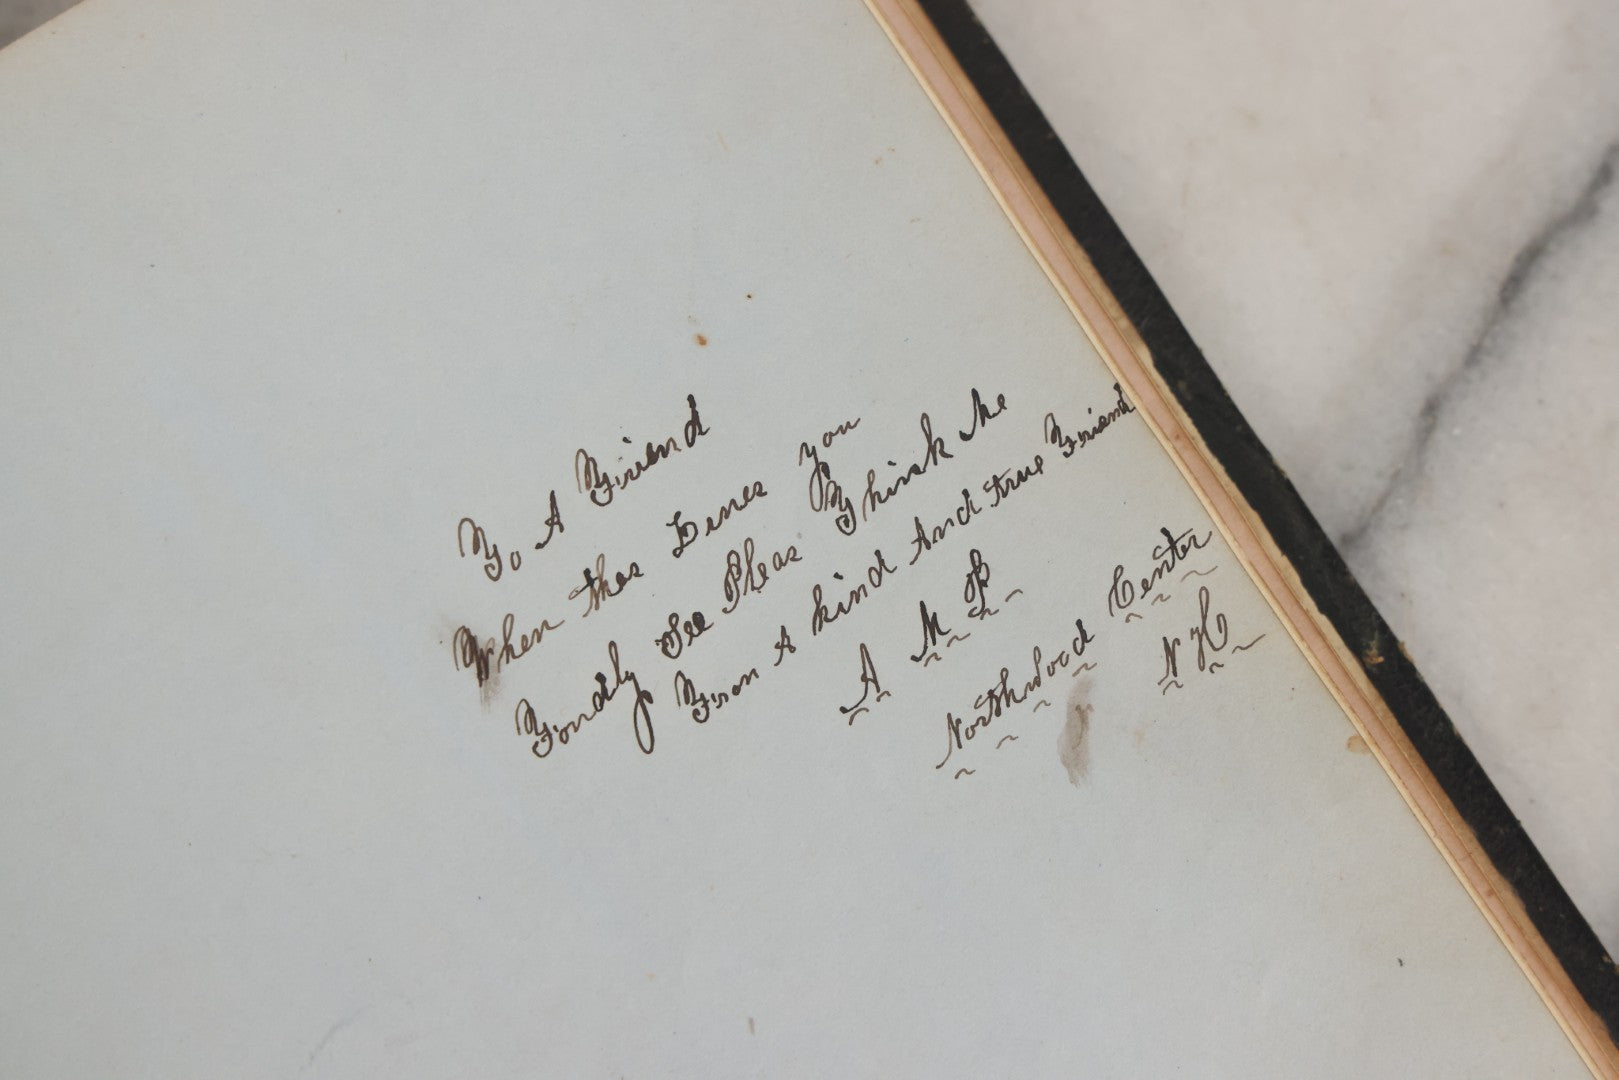 To A Friend
When thes Lines you
Fondly See Pleas Think Me
From A kind And true Friend
A M P
Northwood Center
N H